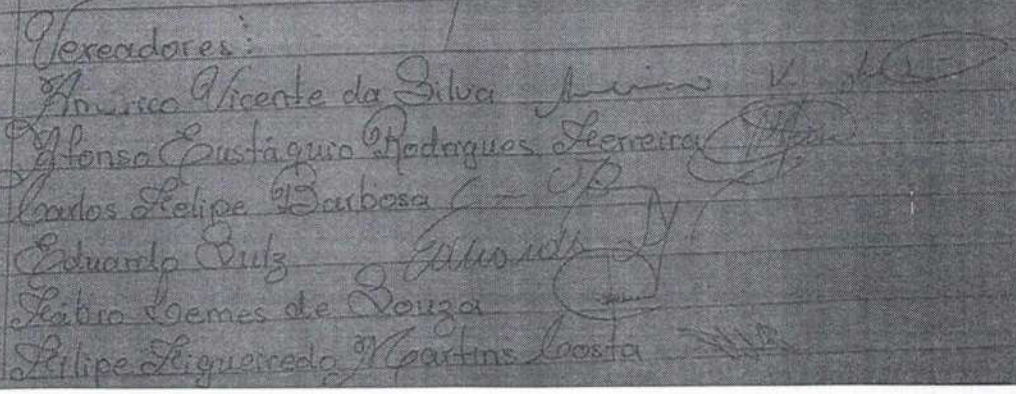 Vereadores:
Américo Vicente da Silva
Afonso Eustáquio Rodrigues Ferreira
Carlos Felipe Barbosa
Eduardo Luiz Eduardo
Fábio Lemes de Souza
Filipe Figueiredo Martins Costa